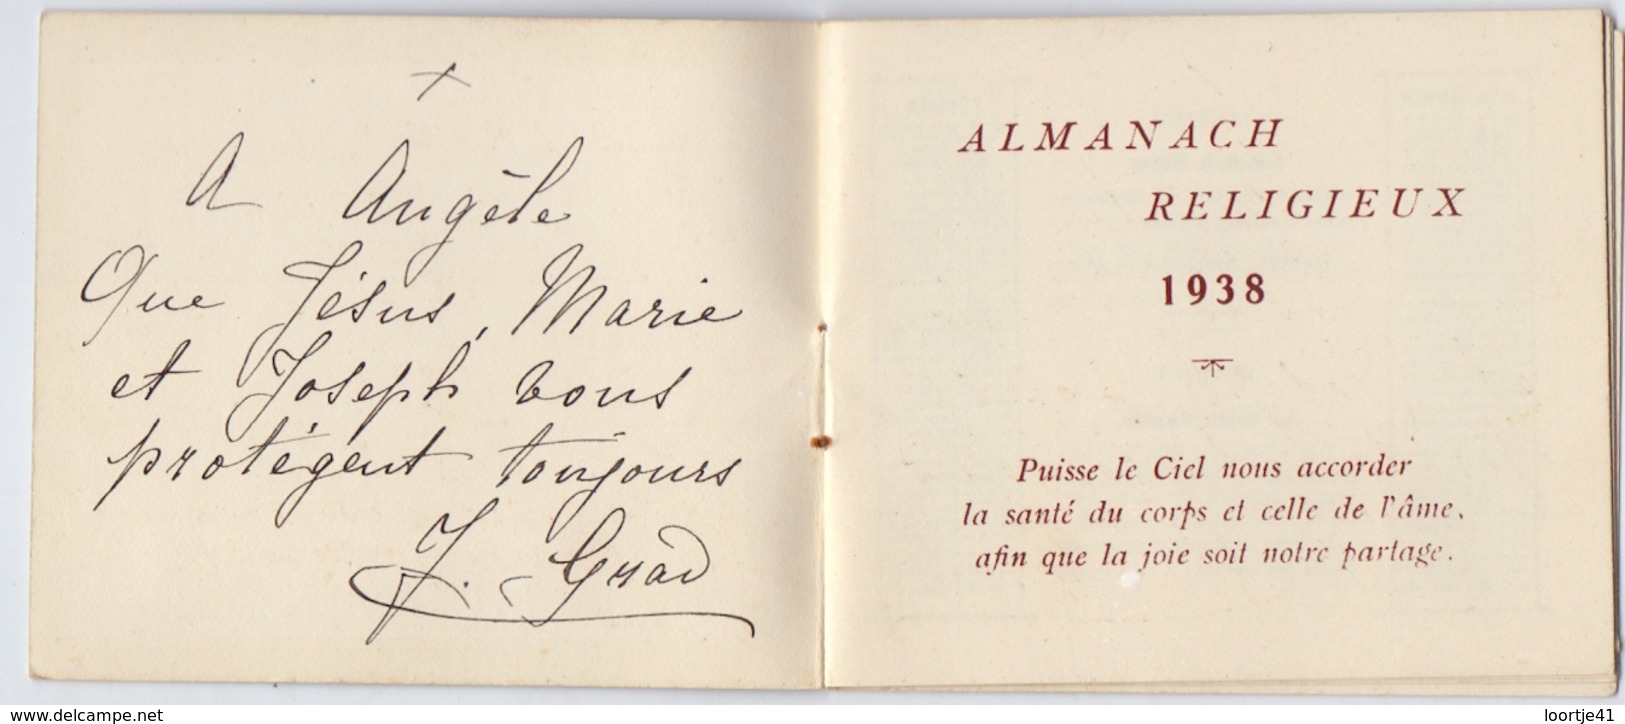 A Angèle
Que Jésus, Marie
et Joseph vous
protégent toujours
J. Grad
ALMANACH
RELIGIEUX
1938
Puisse le Ciel nous accorder
la santé du corps et celle de l'âme,
afin que la joie soit notre partage.
www.delcampe.net
loortje41